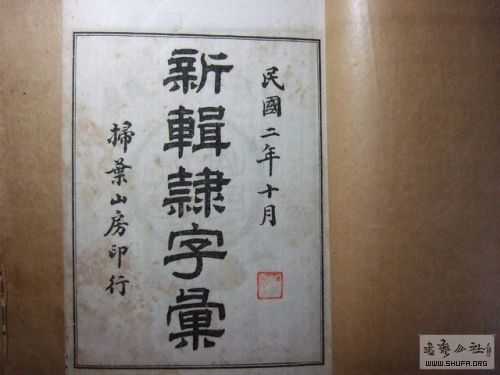 民國二年十月
新輯隸字彙
掃葉山房印行
書藝公社
WWW.SHUFA.ORG